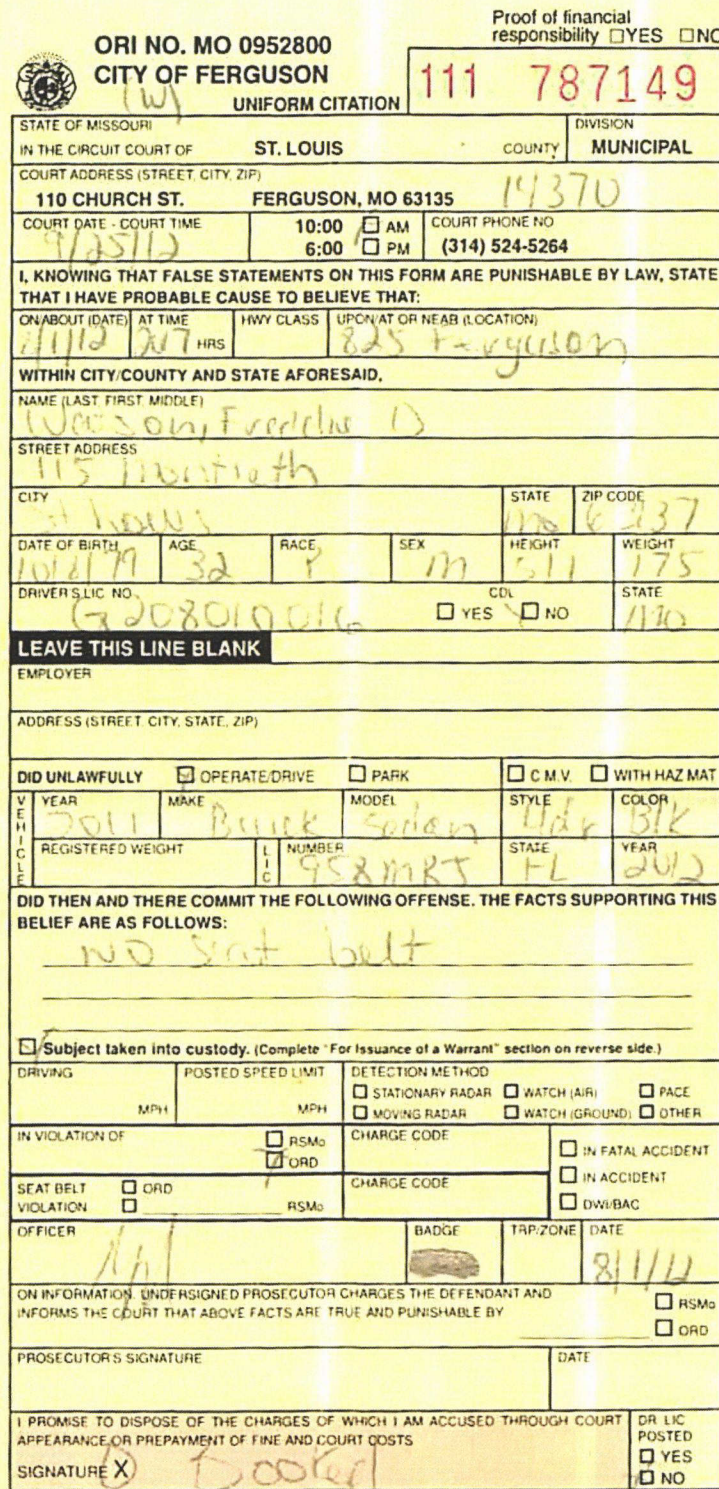 Proof of financial
responsibility ☐YES ☐NO
ORI NO. MO 0952800
CITY OF FERGUSON
(W)
UNIFORM CITATION
111 787149
STATE OF MISSOURI
IN THE CIRCUIT COURT OF ST. LOUIS COUNTY
DIVISION
MUNICIPAL
COURT ADDRESS (STREET, CITY, ZIP)
110 CHURCH ST. FERGUSON, MO 63135 14370
COURT DATE - COURT TIME
9/25/12
10:00 ☐ AM
6:00 ☐ PM
COURT PHONE NO
(314) 524-5264
I, KNOWING THAT FALSE STATEMENTS ON THIS FORM ARE PUNISHABLE BY LAW, STATE
THAT I HAVE PROBABLE CAUSE TO BELIEVE THAT:
ON/ABOUT (DATE) AT TIME HWY CLASS UPON/AT OR NEAR (LOCATION)
HRS 825 Ferguson
WITHIN CITY/COUNTY AND STATE AFORESAID,
NAME (LAST, FIRST, MIDDLE)
Freddie D
STREET ADDRESS
115
CITY STATE ZIP CODE
St Louis Mo
DATE OF BIRTH AGE RACE SEX HEIGHT WEIGHT
32 M 511 175
DRIVER'S LIC. NO. CDL STATE
G208010016 ☐ YES ☐ NO MO
LEAVE THIS LINE BLANK
EMPLOYER
ADDRESS (STREET, CITY, STATE, ZIP)
DID UNLAWFULLY ☑ OPERATE/DRIVE ☐ PARK ☐ C.M.V. ☐ WITH HAZ MAT
VEHICLE
YEAR MAKE MODEL STYLE COLOR
2011 Buick Sedan 4dr Blk
REGISTERED WEIGHT LIC NUMBER STATE YEAR
958MRJ FL 2012
DID THEN AND THERE COMMIT THE FOLLOWING OFFENSE. THE FACTS SUPPORTING THIS
BELIEF ARE AS FOLLOWS:
NO Seat belt
☑ Subject taken into custody. (Complete "For Issuance of a Warrant" section on reverse side.)
DRIVING POSTED SPEED LIMIT DETECTION METHOD
MPH MPH
☐ STATIONARY RADAR ☐ WATCH (AIR) ☐ PACE
☐ MOVING RADAR ☐ WATCH (GROUND) ☐ OTHER
IN VIOLATION OF ☐ RSMo
☑ ORD
CHARGE CODE
☐ IN FATAL ACCIDENT
☐ IN ACCIDENT
☐ DWI/BAC
SEAT BELT ☐ ORD
VIOLATION ☐ RSMo
CHARGE CODE
OFFICER BADGE TRP/ZONE DATE
8/1/12
ON INFORMATION, UNDERSIGNED PROSECUTOR CHARGES THE DEFENDANT AND
INFORMS THE COURT THAT ABOVE FACTS ARE TRUE AND PUNISHABLE BY
☐ RSMo
☐ ORD
PROSECUTOR'S SIGNATURE DATE
I PROMISE TO DISPOSE OF THE CHARGES OF WHICH I AM ACCUSED THROUGH COURT
APPEARANCE OR PREPAYMENT OF FINE AND COURT COSTS
SIGNATURE X Booked
DR LIC
POSTED
☐ YES
☐ NO